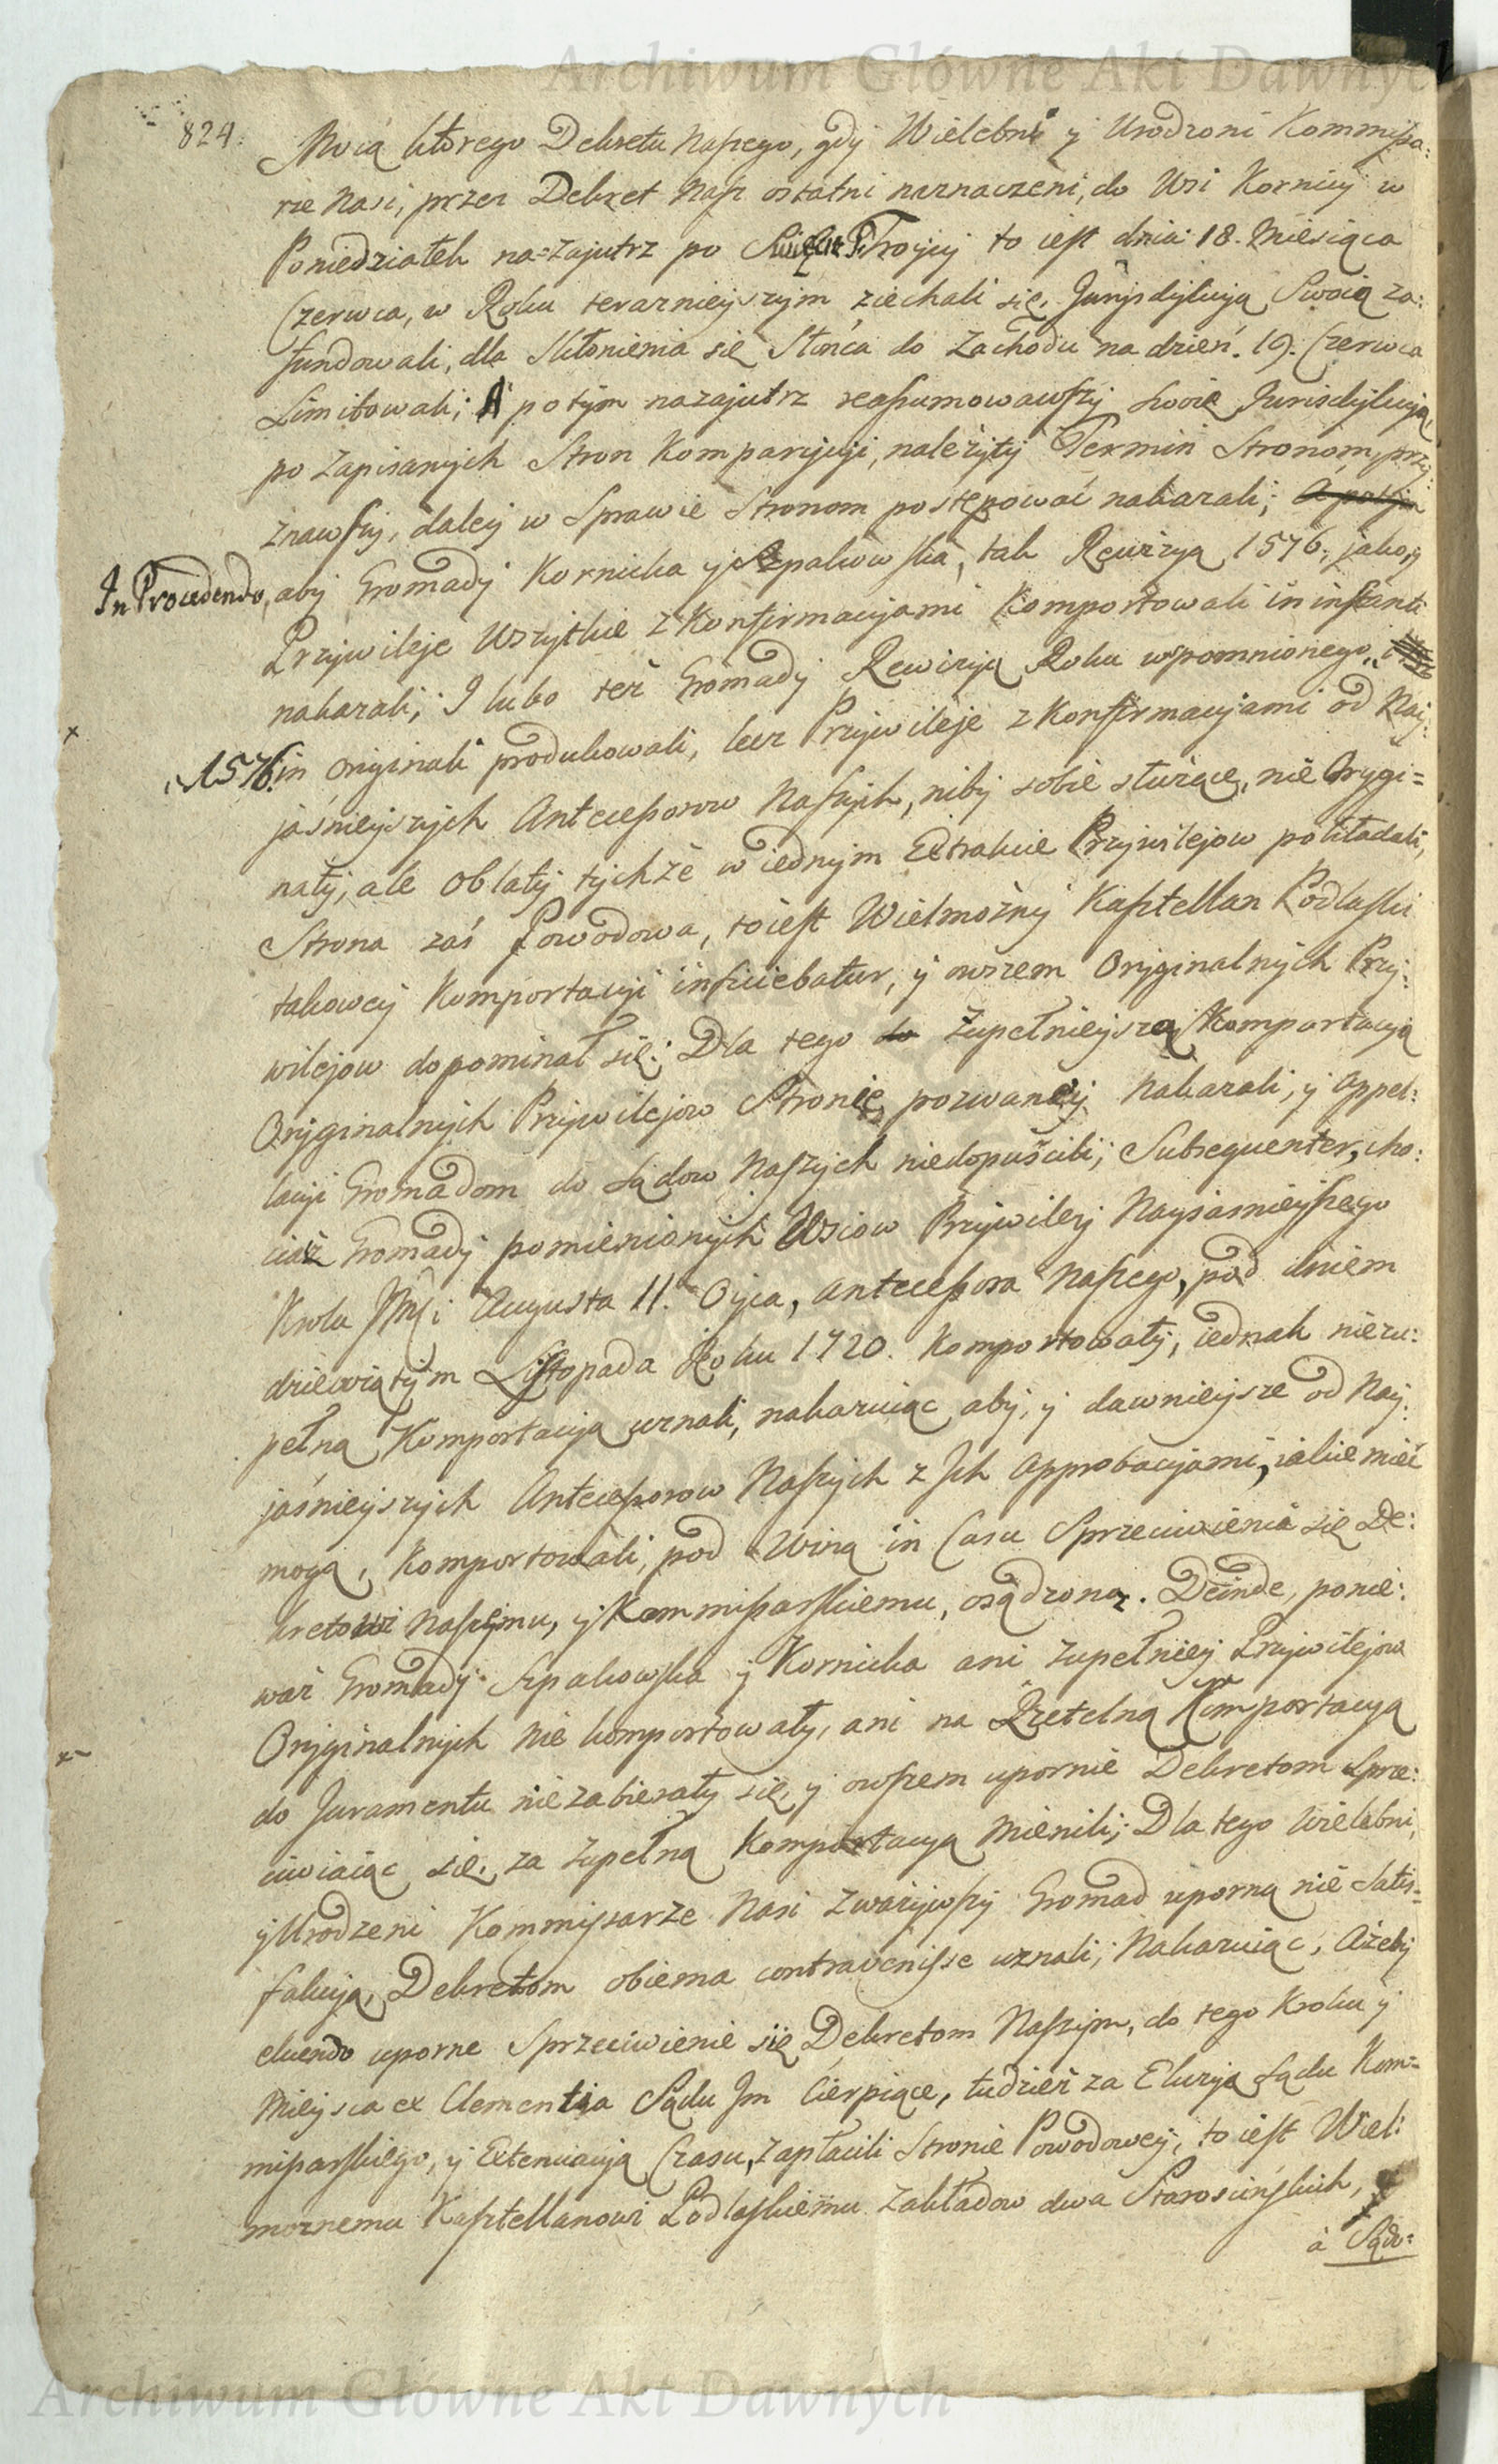 Archiwum Główne Akt Dawnych
824.
Mocą ktorego Dekretu Naszego, gdy Wielebni y Urodzoni Kommissa:
rze Nasi, przez Dekret Nasz ostatni naznaczeni, do Wsi Kornicy w
Poniedziałek na=zajutrz po Swiętey Troycy to iest dnia 18. Miesiąca
Czerwca, w Roku terazniejszym ziechali się, Jurysdykcyą Swoią za:
fundowali, dla Skłonienia się Słońca do Zachodu na dzień. 19. Czerwca
Limitowali; A potym nazajutrz reassumowawszy swoię Jurisdykcyą,
po zapisanych Stron Komparycyi, należyty Termin Stronom, przy:
znawszy, daley w Sprawie Stronom postępować nakazali; A potym
In Procedendo, aby Gromady Kornicka y Szpakowska, tak Rewizyą 1576. jako y
Przywileje Wszytkie z Konfirmacyami Komportowali in instanti
nakazali; I lubo też Gromady Rewizyą Roku wspomnionego
1576. in Originali produkowali, lecz Przywileje z Konfirmacyami od Nay:
jaśnieyszych Antecessorow Naszych, niby sobie służące, nie Orygi=
nały, ale Oblaty tychże w iednym Extrakcie Przywilejow pokładali,
Strona zaś Powodowa, to iest Wielmożny Kasztellan Podlaski
takowey Komportacyi inficiebatur, y owszem Oryginalnych Przy:
wilejow dopominał się; Dla tego do zupełnieyszą Komportacyą
Oryginalnych Przywilejow Stronie pozwaney nakazali, y Appel:
lacyi Gromadom do Sądow Naszych niedopuścili; Subsequenter, cho:
ciaż Gromady pomienionych Wsiow Przywiley Nayjasnieyszego
Krola JMci Augusta II. Oyca, Antecessora Naszego, pod dniem
dziewiątym Listopada Roku 1720. Komportowały, iednak niezu:
pełną Komportacyą uznali, nakazuiąc aby, y dawnieysze od Nay:
jaśnieyszych Antecessorow Naszych z Ich Approbacyami, iakie mieć
mogą, Komportowali, pod Winą in Casu Sprzeciwienia się De:
kretowi Naszemu, y Kommissarskiemu, osądzoną. Deinde, ponie:
waż Gromady Szpakowska y Kornicka ani zupełniey Przywilejow
Oryginalnych nie komportowały, ani na Rzetelną Komportacyą
do Juramentu niezabierały się, y owszem upornie Dekretom Sprze:
ciwiaiąc się, za zupełną Komportacyą mienili; Dla tego Wielebni,
y Urodzeni Kommissarze Nasi zważywszy Gromad uporną nie Satis=
fakcyą, Dekretom obiema contravenisse uznali; Nakazuiąc, Ażeby
eluendo uporne Sprzeciwienie się Dekretom Naszym, do tego Kroku y
Mieysca ex Clementia Sądu Im Cierpiące, tudzież za Eluzyą Sądu Kom=
missarskiego, y Extenuacyą Czasu, zapłacili Stronie Powodowey, to iest Wiel:
możnemu Kasztellanowi Podlaskiemu Zakładow dwa Starościńskich,
à Sądo=
Archiwum Główne Akt Dawnych